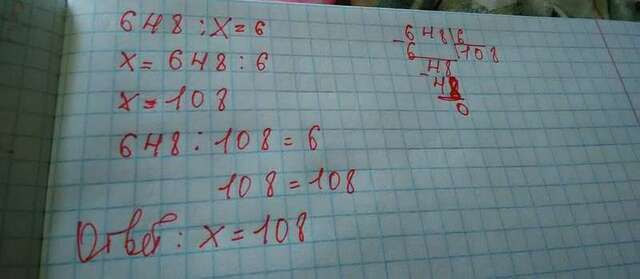 648 : x = 6
x = 648 : 6
x = 108
648 : 108 = 6
108 = 108
Ответ: x = 108
- 648 | 6
6 | 108
- 48
48
0